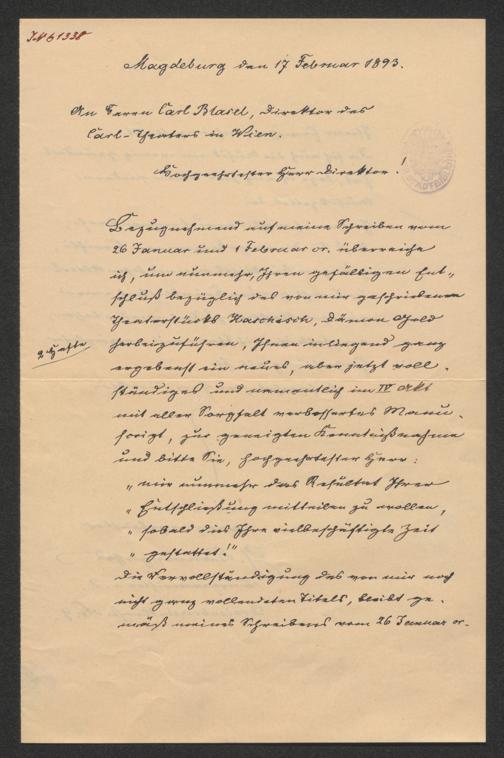 IN 61338
Magdeburg den 17 Februar 1893.
An Herrn Carl Blasel, Direktor des
Carl-Theaters in Wien.
Hochgeehrtester Herr Direktor!
Bezugnehmend auf meine Schreiben vom
26 Januar und 1 Februar cr. überreiche
ich, um nunmehr, Ihren gefälligen Ent„
schluß bezüglich des von mir geschriebenen
Theaterstücks Haschisch, Dämon Gold
2 Hefte
herbeizuführen, Ihnen inliegend ganz
ergebenst ein neues, aber jetzt voll-
ständiges und namentlich im IV Akt
mit aller Sorgfalt verbessertes Manu-
script, zur geneigten Kenntnißnahme
und bitte Sie, hochgeehrtester Herr:
„mir nunmehr das Resultat Ihrer
„Entschließung mitteilen zu wollen,
„sobald dies Ihre vielbeschäftigte Zeit
„gestattet!"
Die Vervollständigung des von mir noch
nicht ganz vollendeten Titels, bleibt ge-
mäß meines Schreibens vom 26 Januar cr.